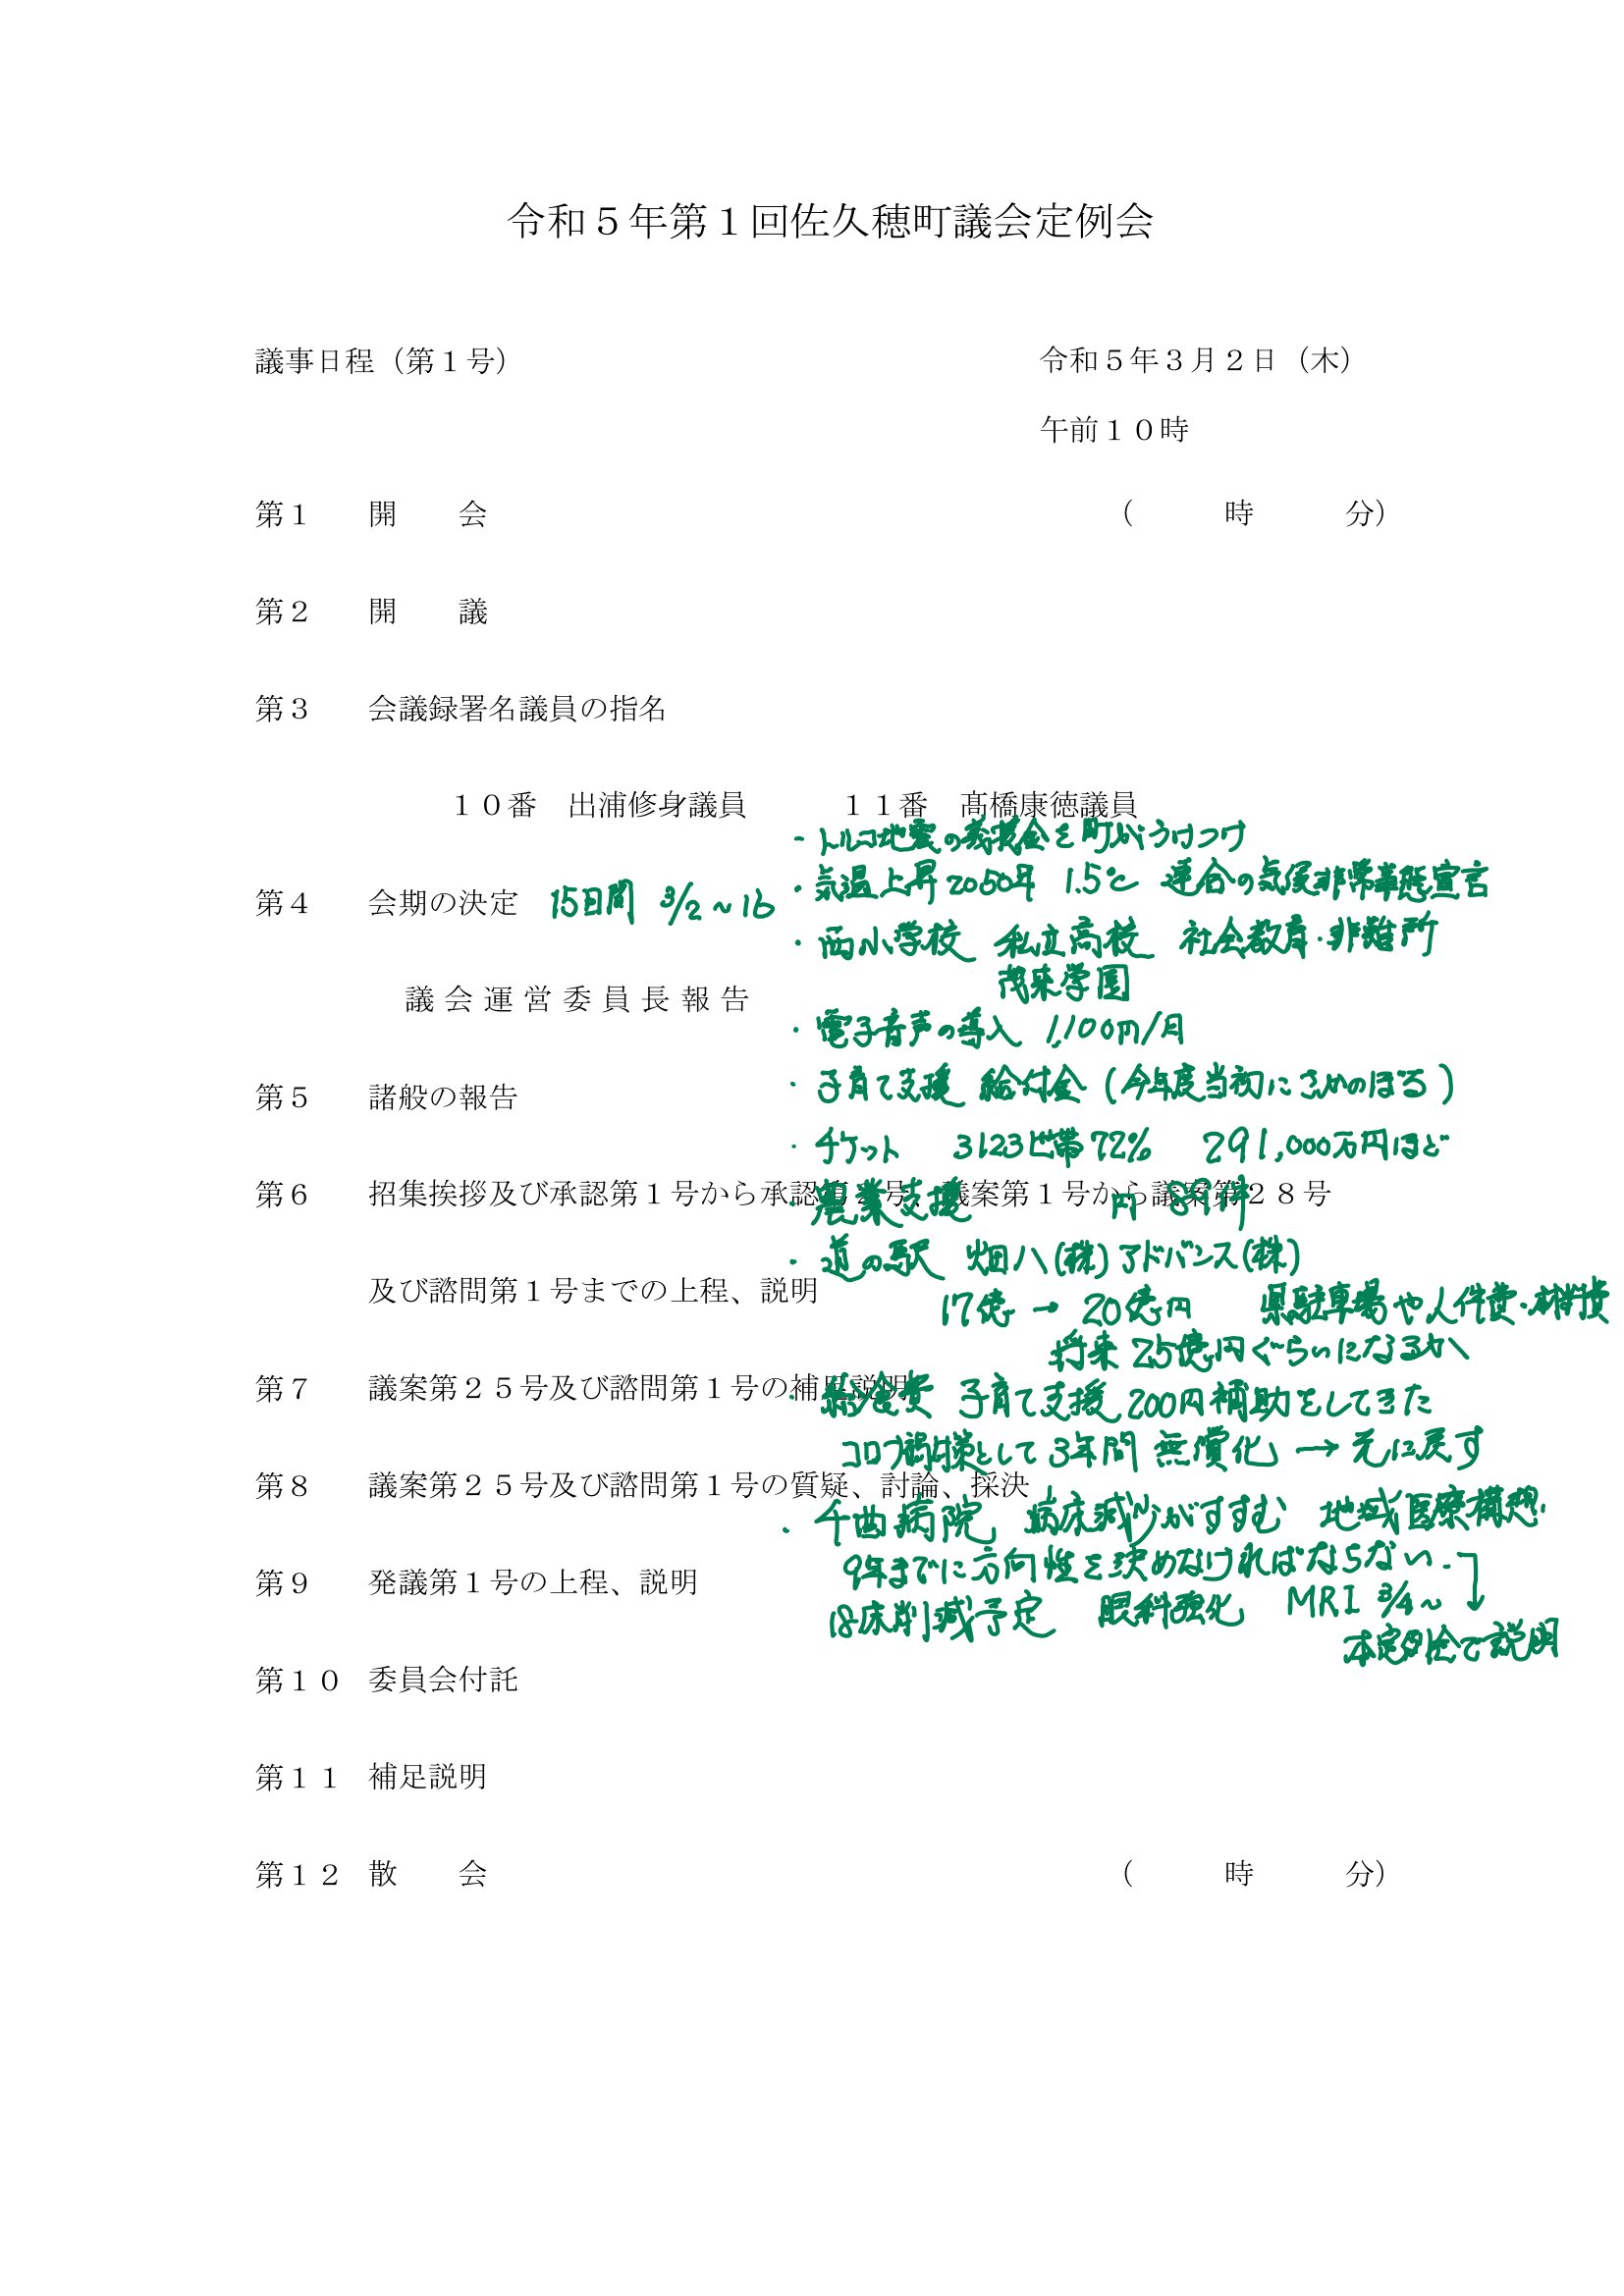 令和５年第１回佐久穂町議会定例会
議事日程（第１号）　令和５年３月２日（木）
午前１０時
第１　開　　会　（　　　時　　　分）
第２　開　　議
第３　会議録署名議員の指名
１０番　出浦修身議員　　　１１番　髙橋康徳議員
・トルコ地震の義援金を町がうけつけ
第４　会期の決定　15日間 3/2～16
・気温上昇2050年 1.5℃ 連合の気候非常事態宣言
・西小学校 私立高校 社会教育・非難所
茂来学園
議会運営委員長報告
・電子音声の導入 1,100円/月
第５　諸般の報告
・子育て支援 給付金（今年度当初にさかのぼる）
・チケット 3123世帯72% 291,000万円ほど
第６　招集挨拶及び承認第１号から承認第２号、議案第１号から議案第２８号
・農業支援　　円 89件
・道の駅 畑八(株)アドバンス(株)
及び諮問第１号までの上程、説明
17億→20億円 県駐車場や人件費・材料費
将来25億円ぐらいになるか
第７　議案第２５号及び諮問第１号の補足説明
・給食費 子育て支援 200円補助をしてきた
コロナ対策として3年間 無償化→元に戻す
第８　議案第２５号及び諮問第１号の質疑、討論、採決
・千曲病院 病床減少がすすむ 地域医療構想
9年までに方向性を決めなければならない
第９　発議第１号の上程、説明
18床削減予定 眼科強化 MRI 3/4～
本定例会で説明
第１０　委員会付託
第１１　補足説明
第１２　散　　会　（　　　時　　　分）